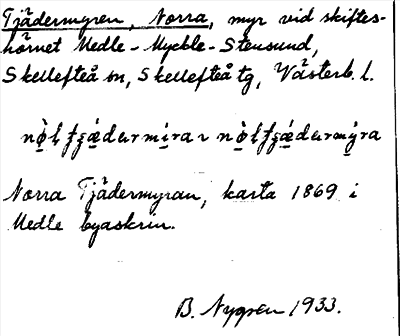 Tjädermyren, Norra, myr vid skiftes-
hörnet Medle-Myckle-Stensund,
Skellefteå sn, Skellefteå tg, Västerb. l.
Norra Tjädermyran, karta 1869 i
Medle byaskrin.
B. Nygren 1933.